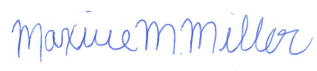 Maxine M. Miller